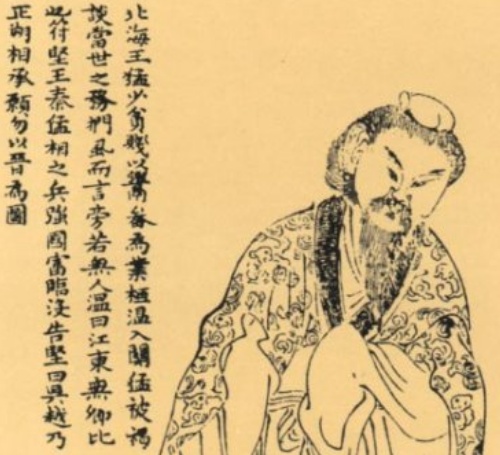 北海王猛少貧賤以鬻畚為業桓温入關猛被褐
談當世之務捫虱而言旁若無人温曰江東無卿比
也符堅王秦猛相之兵強國富臨没告堅曰吳越乃
正朔相承願勿以晉為圖